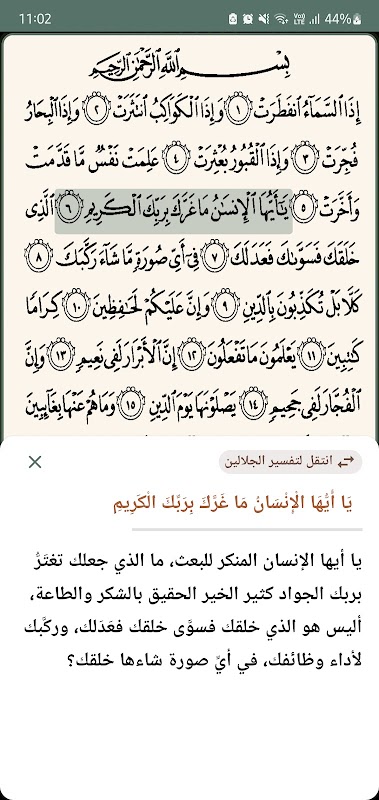 11:02
44%
بِسْمِ ٱللَّهِ ٱلرَّحْمَٰنِ ٱلرَّحِيمِ
إِذَا ٱلسَّمَآءُ ٱنفَطَرَتْ ١ وَإِذَا ٱلْكَوَاكِبُ ٱنتَثَرَتْ ٢ وَإِذَا ٱلْبِحَارُ
فُجِّرَتْ ٣ وَإِذَا ٱلْقُبُورُ بُعْثِرَتْ ٤ عَلِمَتْ نَفْسٌ مَّا قَدَّمَتْ
وَأَخَّرَتْ ٥ يَٰٓأَيُّهَا ٱلْإِنسَٰنُ مَا غَرَّكَ بِرَبِّكَ ٱلْكَرِيمِ ٦ ٱلَّذِى
خَلَقَكَ فَسَوَّىٰكَ فَعَدَلَكَ ٧ فِىٓ أَىِّ صُورَةٍ مَّا شَآءَ رَكَّبَكَ ٨
كَلَّا بَلْ تُكَذِّبُونَ بِٱلدِّينِ ٩ وَإِنَّ عَلَيْكُمْ لَحَٰفِظِينَ ١٠ كِرَامًا
كَٰتِبِينَ ١١ يَعْلَمُونَ مَا تَفْعَلُونَ ١٢ إِنَّ ٱلْأَبْرَارَ لَفِى نَعِيمٍ ١٣ وَإِنَّ
ٱلْفُجَّارَ لَفِى جَحِيمٍ ١٤ يَصْلَوْنَهَا يَوْمَ ٱلدِّينِ ١٥ وَمَا هُمْ عَنْهَا بِغَآئِبِينَ
انتقل لتفسير الجلالين
يَا أَيُّهَا الْإِنْسَانُ مَا غَرَّكَ بِرَبِّكَ الْكَرِيمِ
يا أيها الإنسان المنكر للبعث، ما الذي جعلك تغتَرُّ
بربك الجواد كثير الخير الحقيق بالشكر والطاعة،
أليس هو الذي خلقك فسوَّى خلقك فعَدَلك، وركَّبك
لأداء وظائفك، في أيِّ صورة شاءها خلقك؟